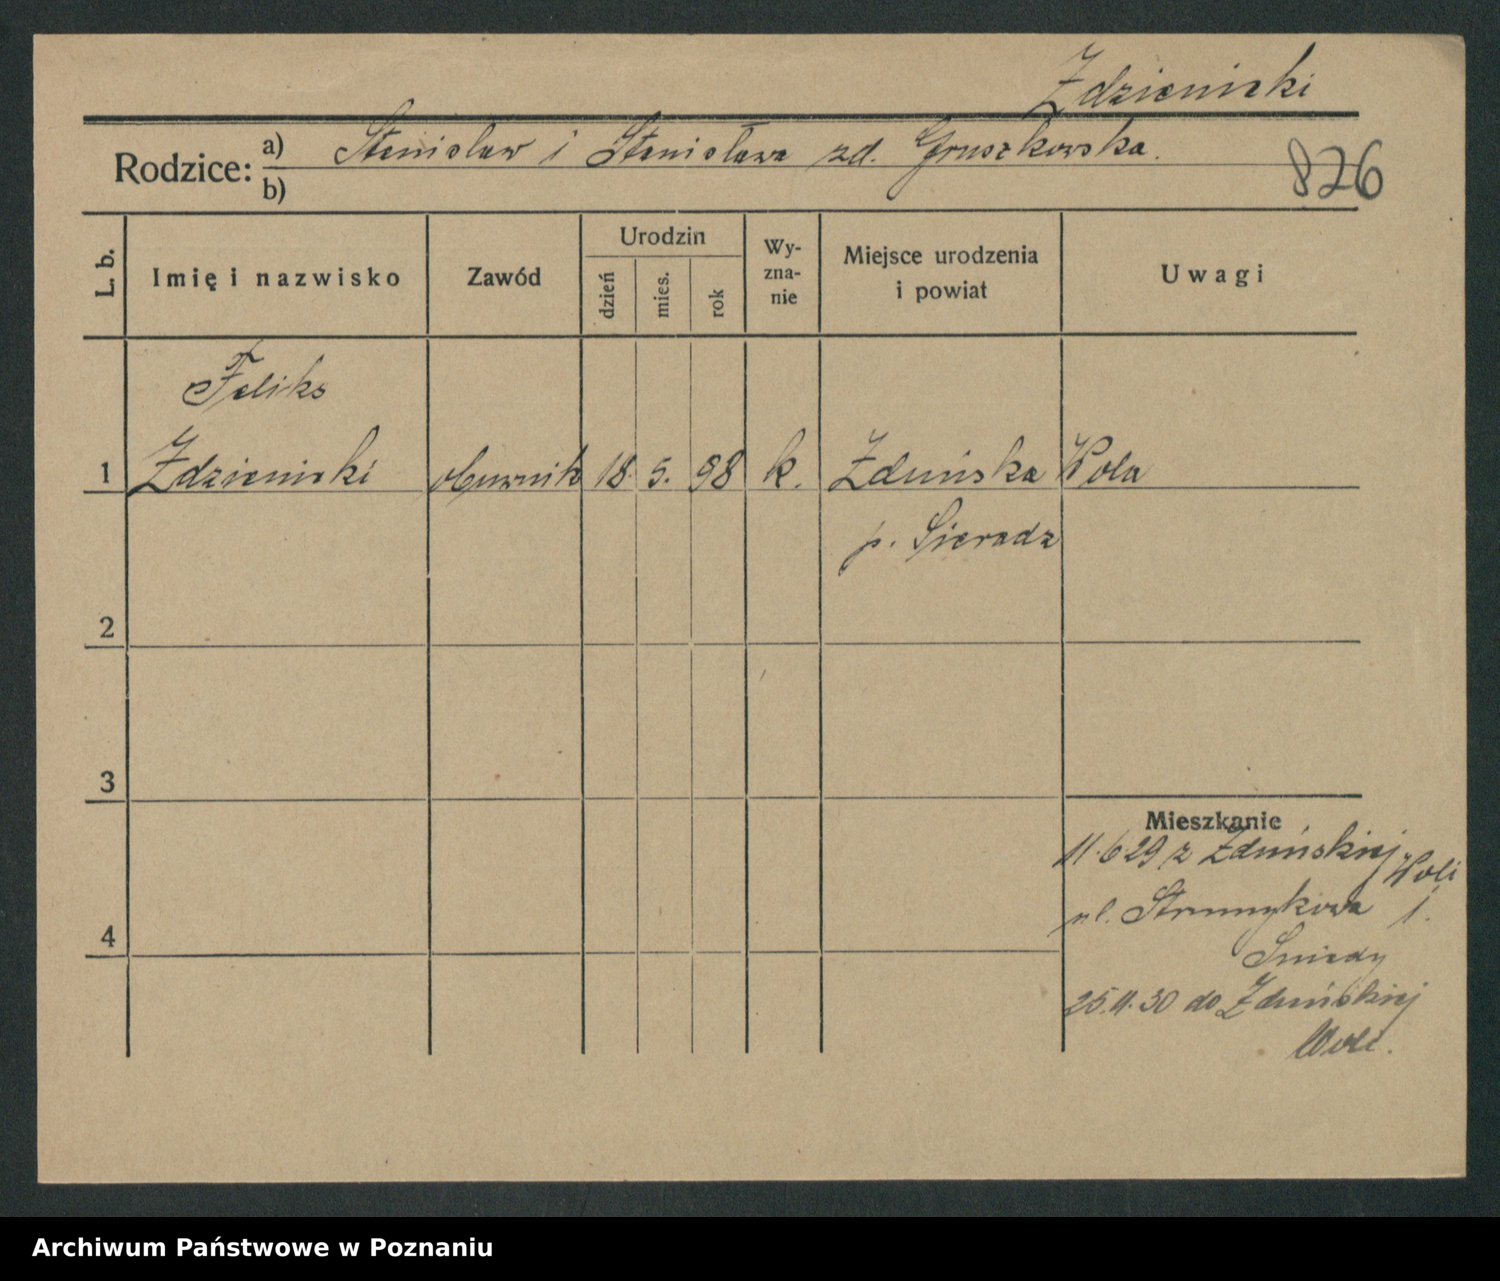 Zdzienicki
Rodzice:
a) Stanisław i Stanisława zd. Gruszkowska.
b)
826
L. b.
Imię i nazwisko
Zawód
Urodzin
dzień
mies.
rok
Wy-
zna-
nie
Miejsce urodzenia
i powiat
Uwagi
Feliks
1 Zdzienicki 18. 5. 98 k. Zduńska Wola
p. Sieradz
2
3
Mieszkanie
11.6 29 z Zduńskiej Woli
ul. Strumykowa 1.
4
25.11.30 do Zduńskiej
Woli.
Archiwum Państwowe w Poznaniu